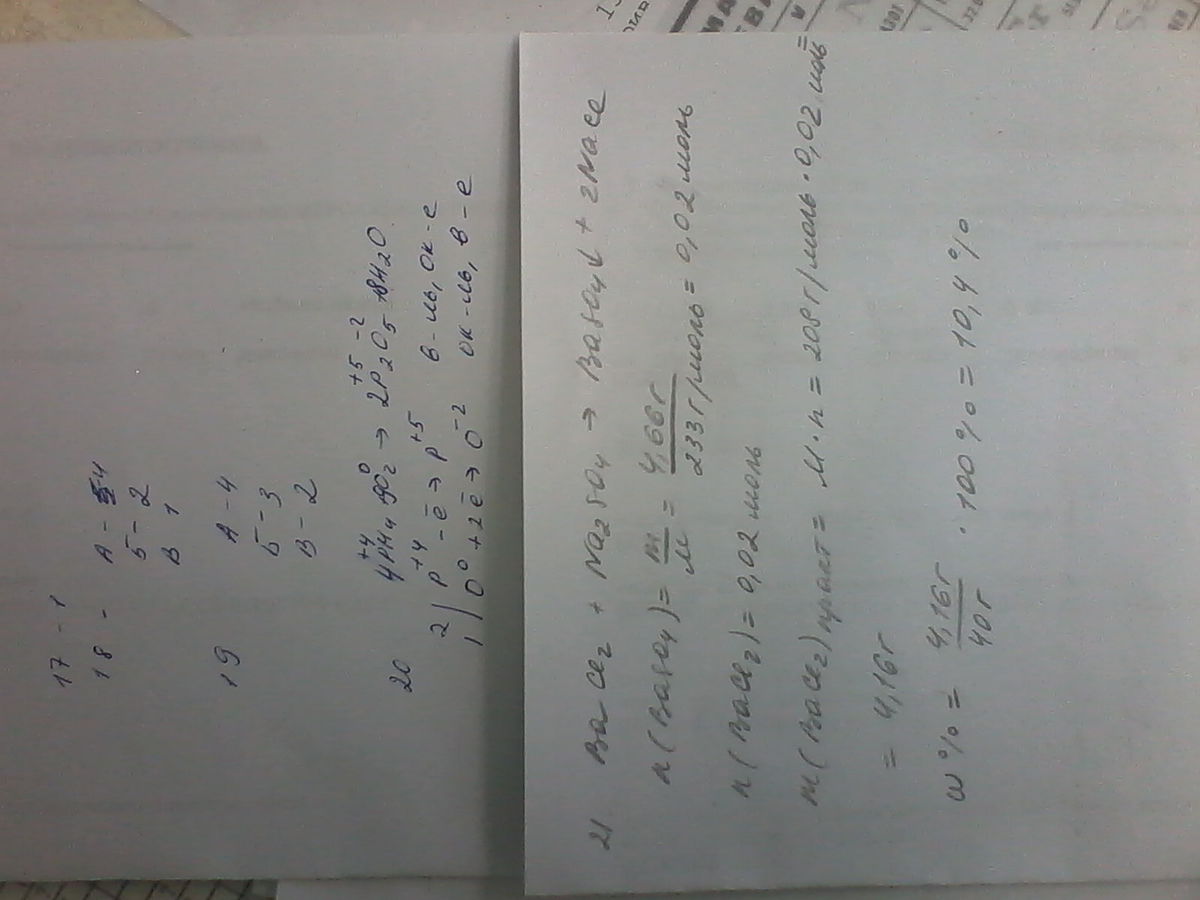 17 - 1
18 - А - 4
Б - 2
В 1
19 А - 4
Б - 3
В - 2
20 4PH4 + 9O2 → 2P2O5 + 8H2O
+4 0 +5 -2
2 | P+4 - ē → P+5 в-ль, ок-е
1 | O0 + 2ē → O-2 ок-ль, в-е
21 BaCl2 + Na2SO4 → BaSO4↓ + 2NaCl
n(BaSO4) = m/M = 4,66г/233г/моль = 0,02 моль
n(BaCl2) = 0,02 моль
m(BaCl2)практ = M·n = 208г/моль · 0,02 моль =
= 4,16г
ω% = 4,16г/40г · 100% = 10,4%